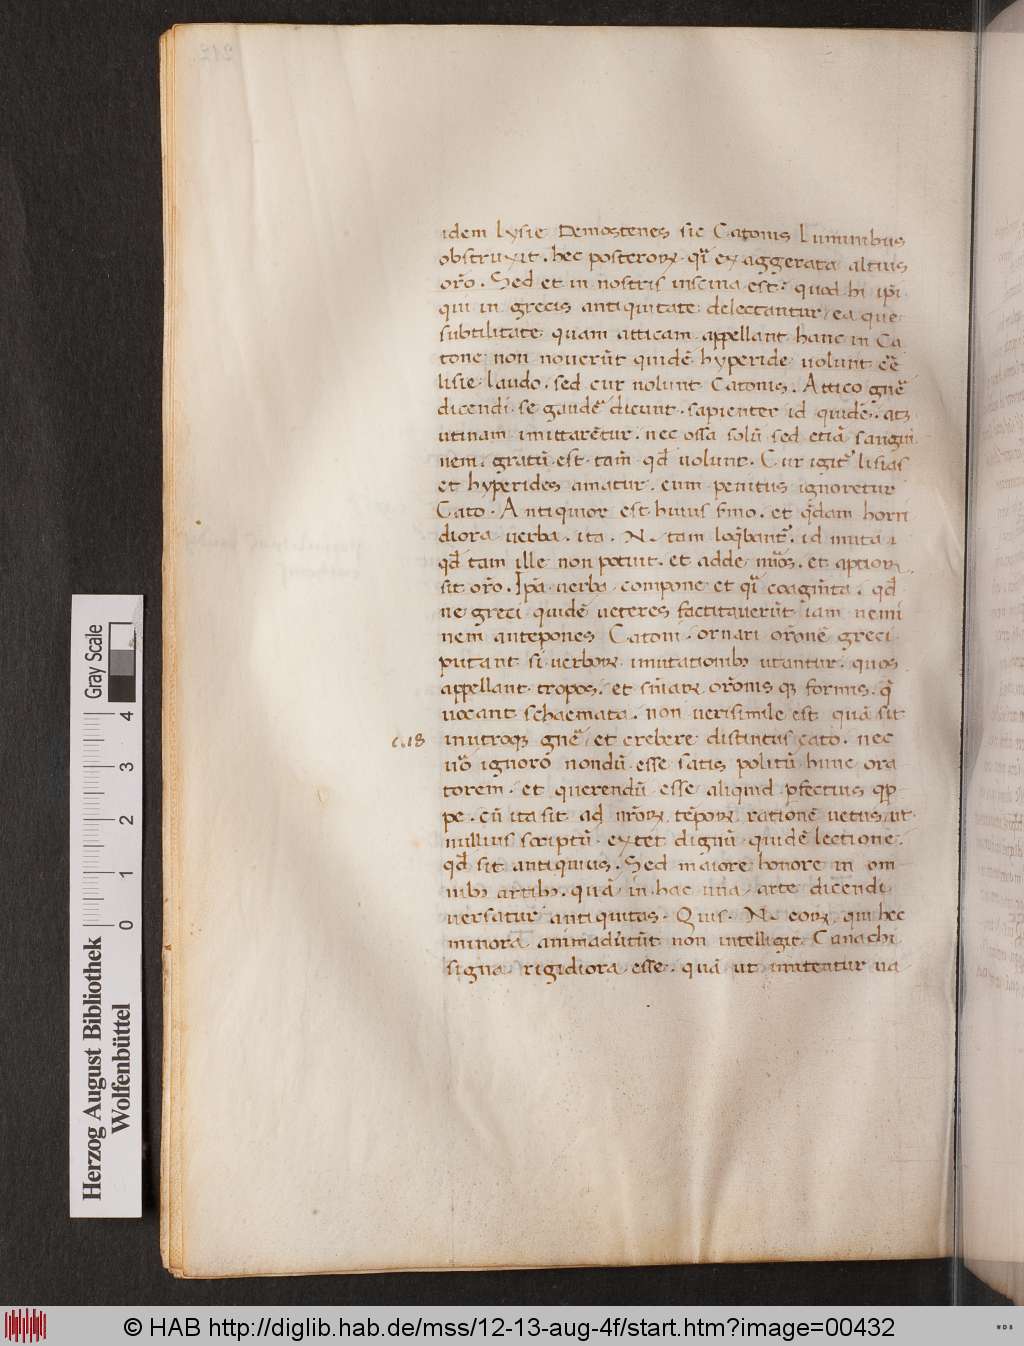 idem lysie Demostenes sic Catonis Luminibus
obstruxit. hec posterorꝝ. qͣi exaggerata altius
orõ. Sed et in nostris inscina est. quod hi ip̃i
qui in grecis antiquitate delectantur, ea que
subtilitate quam atticam appellant hanc in Ca
tone non noverũt quidẽ hyperide volunt eẽ
lisie laudo. sed cur nolunt Catonis. Attico gñe
dicendi se gaudẽ dicunt. sapienter id quidẽ. atqꝫ
utinam imittarẽtur. nec ossa solũ sed etiã sangui
nem. gratũ est tam̃ qd̃ volunt. Cur igit̃ lisias
et hyperides amatur. cum penitus ignoretur
Cato. Antiquior est huius s̃mo. et q̃dam horri
diora verba. ita. N. tam loq̃bant̃. id muta
qd̃ tam ille non potuit. et adde nũos. et aptiorꝝ
sit orõ. Ip̃a verba compone et qͣi coagm̃ta. qd̃
ne greci quidẽ veteres factitaverũt iam nemi
nem antepones Catoni. ornari orõnẽ greci
putant si verborꝝ imutationibꝫ utantur. quos
appellant tropos. et sñiarꝝ orõnis qꝫ formis. q̃
vocant schaemata. non verisimile est quã sit
inutroqꝫ gñe et crebere distinctus cato. nec
vͦo ignoro nondũ esse satis politũ hunc ora
torem. et querendũ esse aliquid ꝑfectius qꝑ
pe. cũ ita sit ad nr̃orꝝ tẽporꝝ rationẽ vetus, ut
nullius scriptũ extet dignũ quidẽ lectione.
qd̃ sit antiquius. Sed maiore honore in om
nibꝫ artibꝫ. quã in hac una arte dicendi
versatur antiquitas. Quis. N. eorꝝ qui hec
minora animadṽtũt non intelligit Canachi
signa rigidiora esse. quã ut imitentur va
Gray Scale
4
3
2
1
0
Herzog August Bibliothek
Wolfenbüttel
© HAB http://diglib.hab.de/mss/12-13-aug-4f/start.htm?image=00432